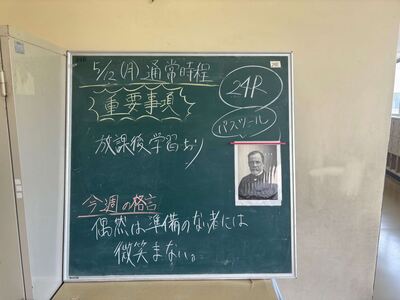 5/12(月)通常時程
24R
重要事項
パスツール
放課後学習あり
今週の格言
偶然は準備のない者には
微笑まない。